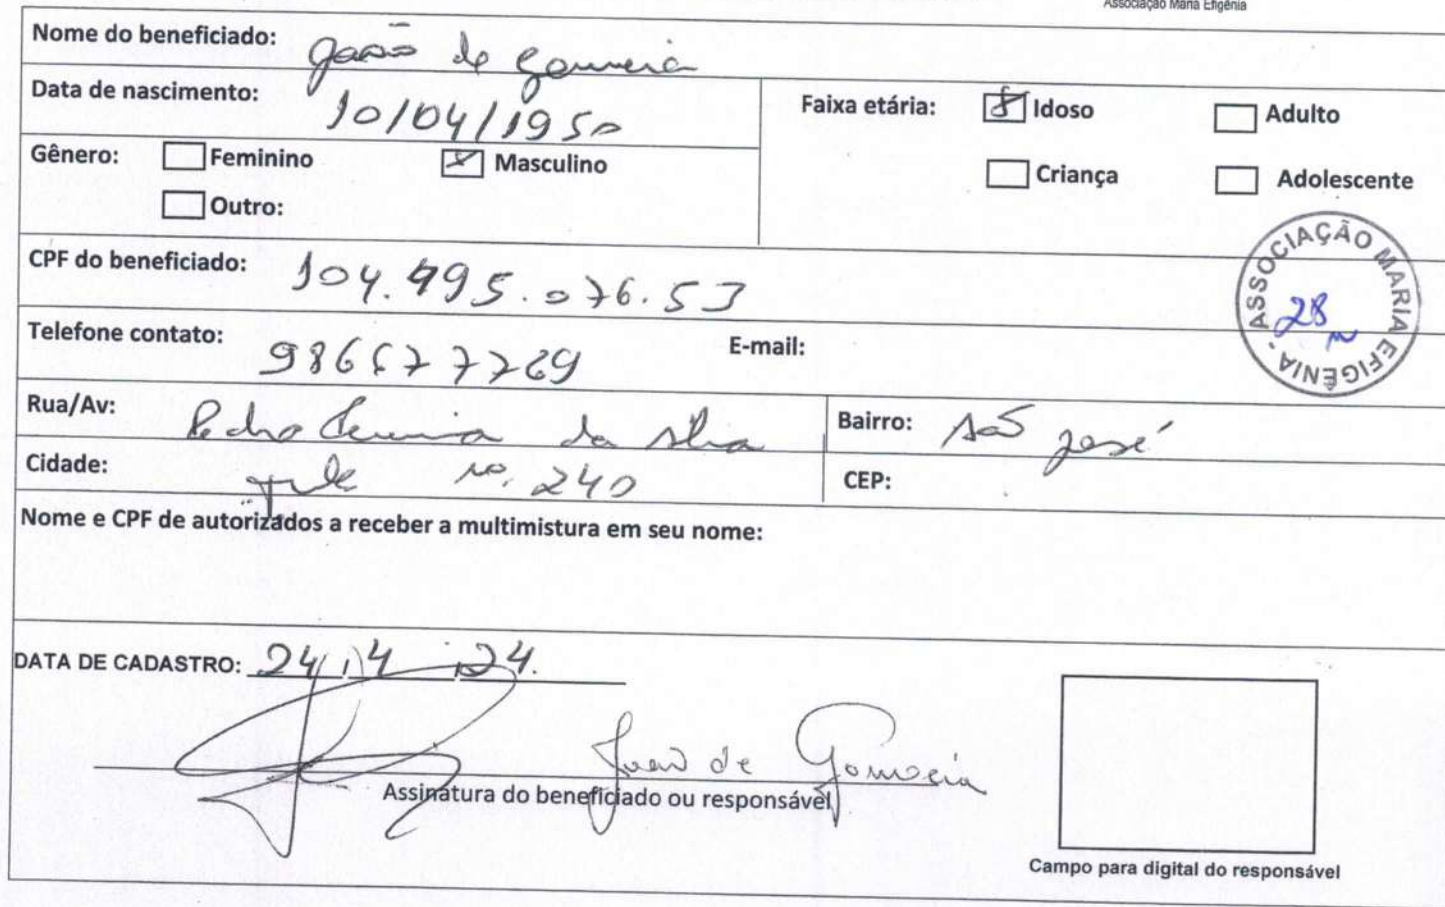 Associação Maria Efigênia
Nome do beneficiado: João de Gouveia
Data de nascimento: 10/04/1950
Faixa etária: Idoso Adulto
Gênero: Feminino Masculino
Criança Adolescente
Outro:
CPF do beneficiado: 104.495.076.53
ASSOCIAÇÃO MARIA EFIGÊNIA
28
Telefone contato: E-mail:
Rua/Av: Pedro da Silva Bairro: São José
Cidade: no. 240 CEP:
Nome e CPF de autorizados a receber a multimistura em seu nome:
DATA DE CADASTRO: 24/4/24.
João de Gouveia
Assinatura do beneficiado ou responsável
Campo para digital do responsável